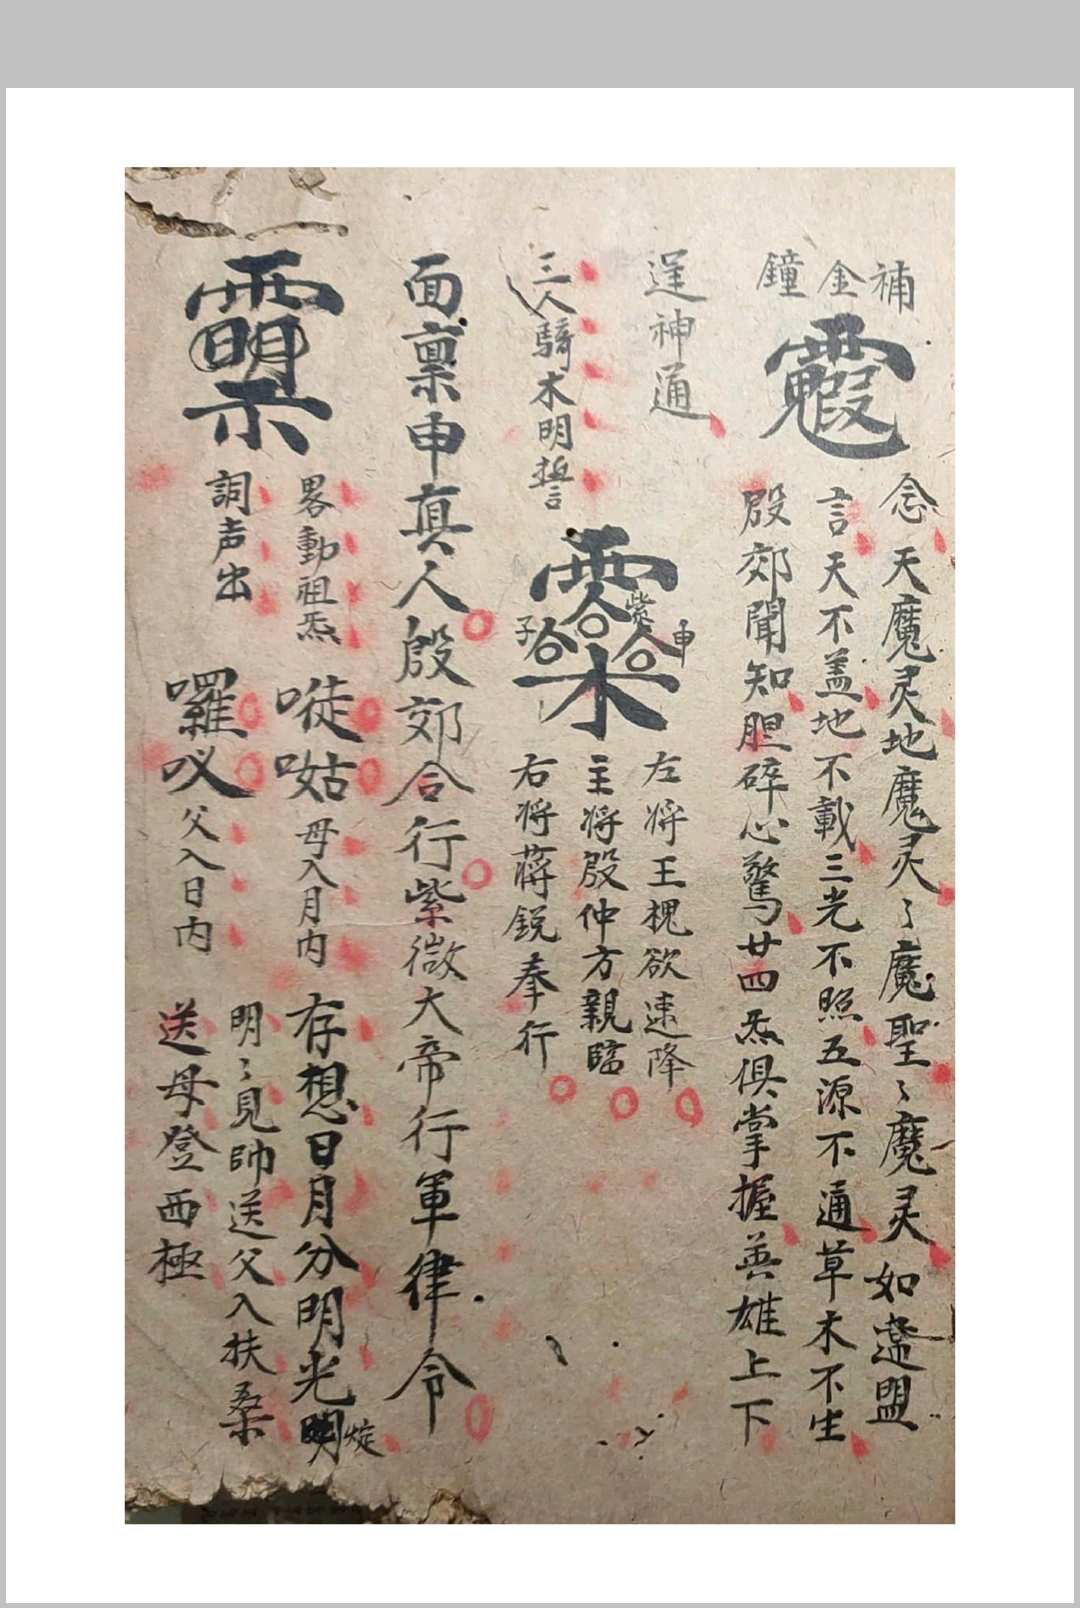 補
金
鐘
念天魔灵地魔灵〻魔聖〻魔灵如違盟
言天不盖地不載三光不照五源不通草木不生
殷郊聞知胆碎心驚廿四炁俱掌握英雄上下
逞神通
三人騎木明誓
子
紫
申
左将王槐欲速降
主将殷仲方親臨
右将蒋銳奉行
面禀申真人殷郊合行紫微大帝行軍律令
畧動祖炁
詞声出
嗺㖼母入月内
囉㕥父入日内
存想日月分明光
明〻見帥送父入扶桑
送母登西極